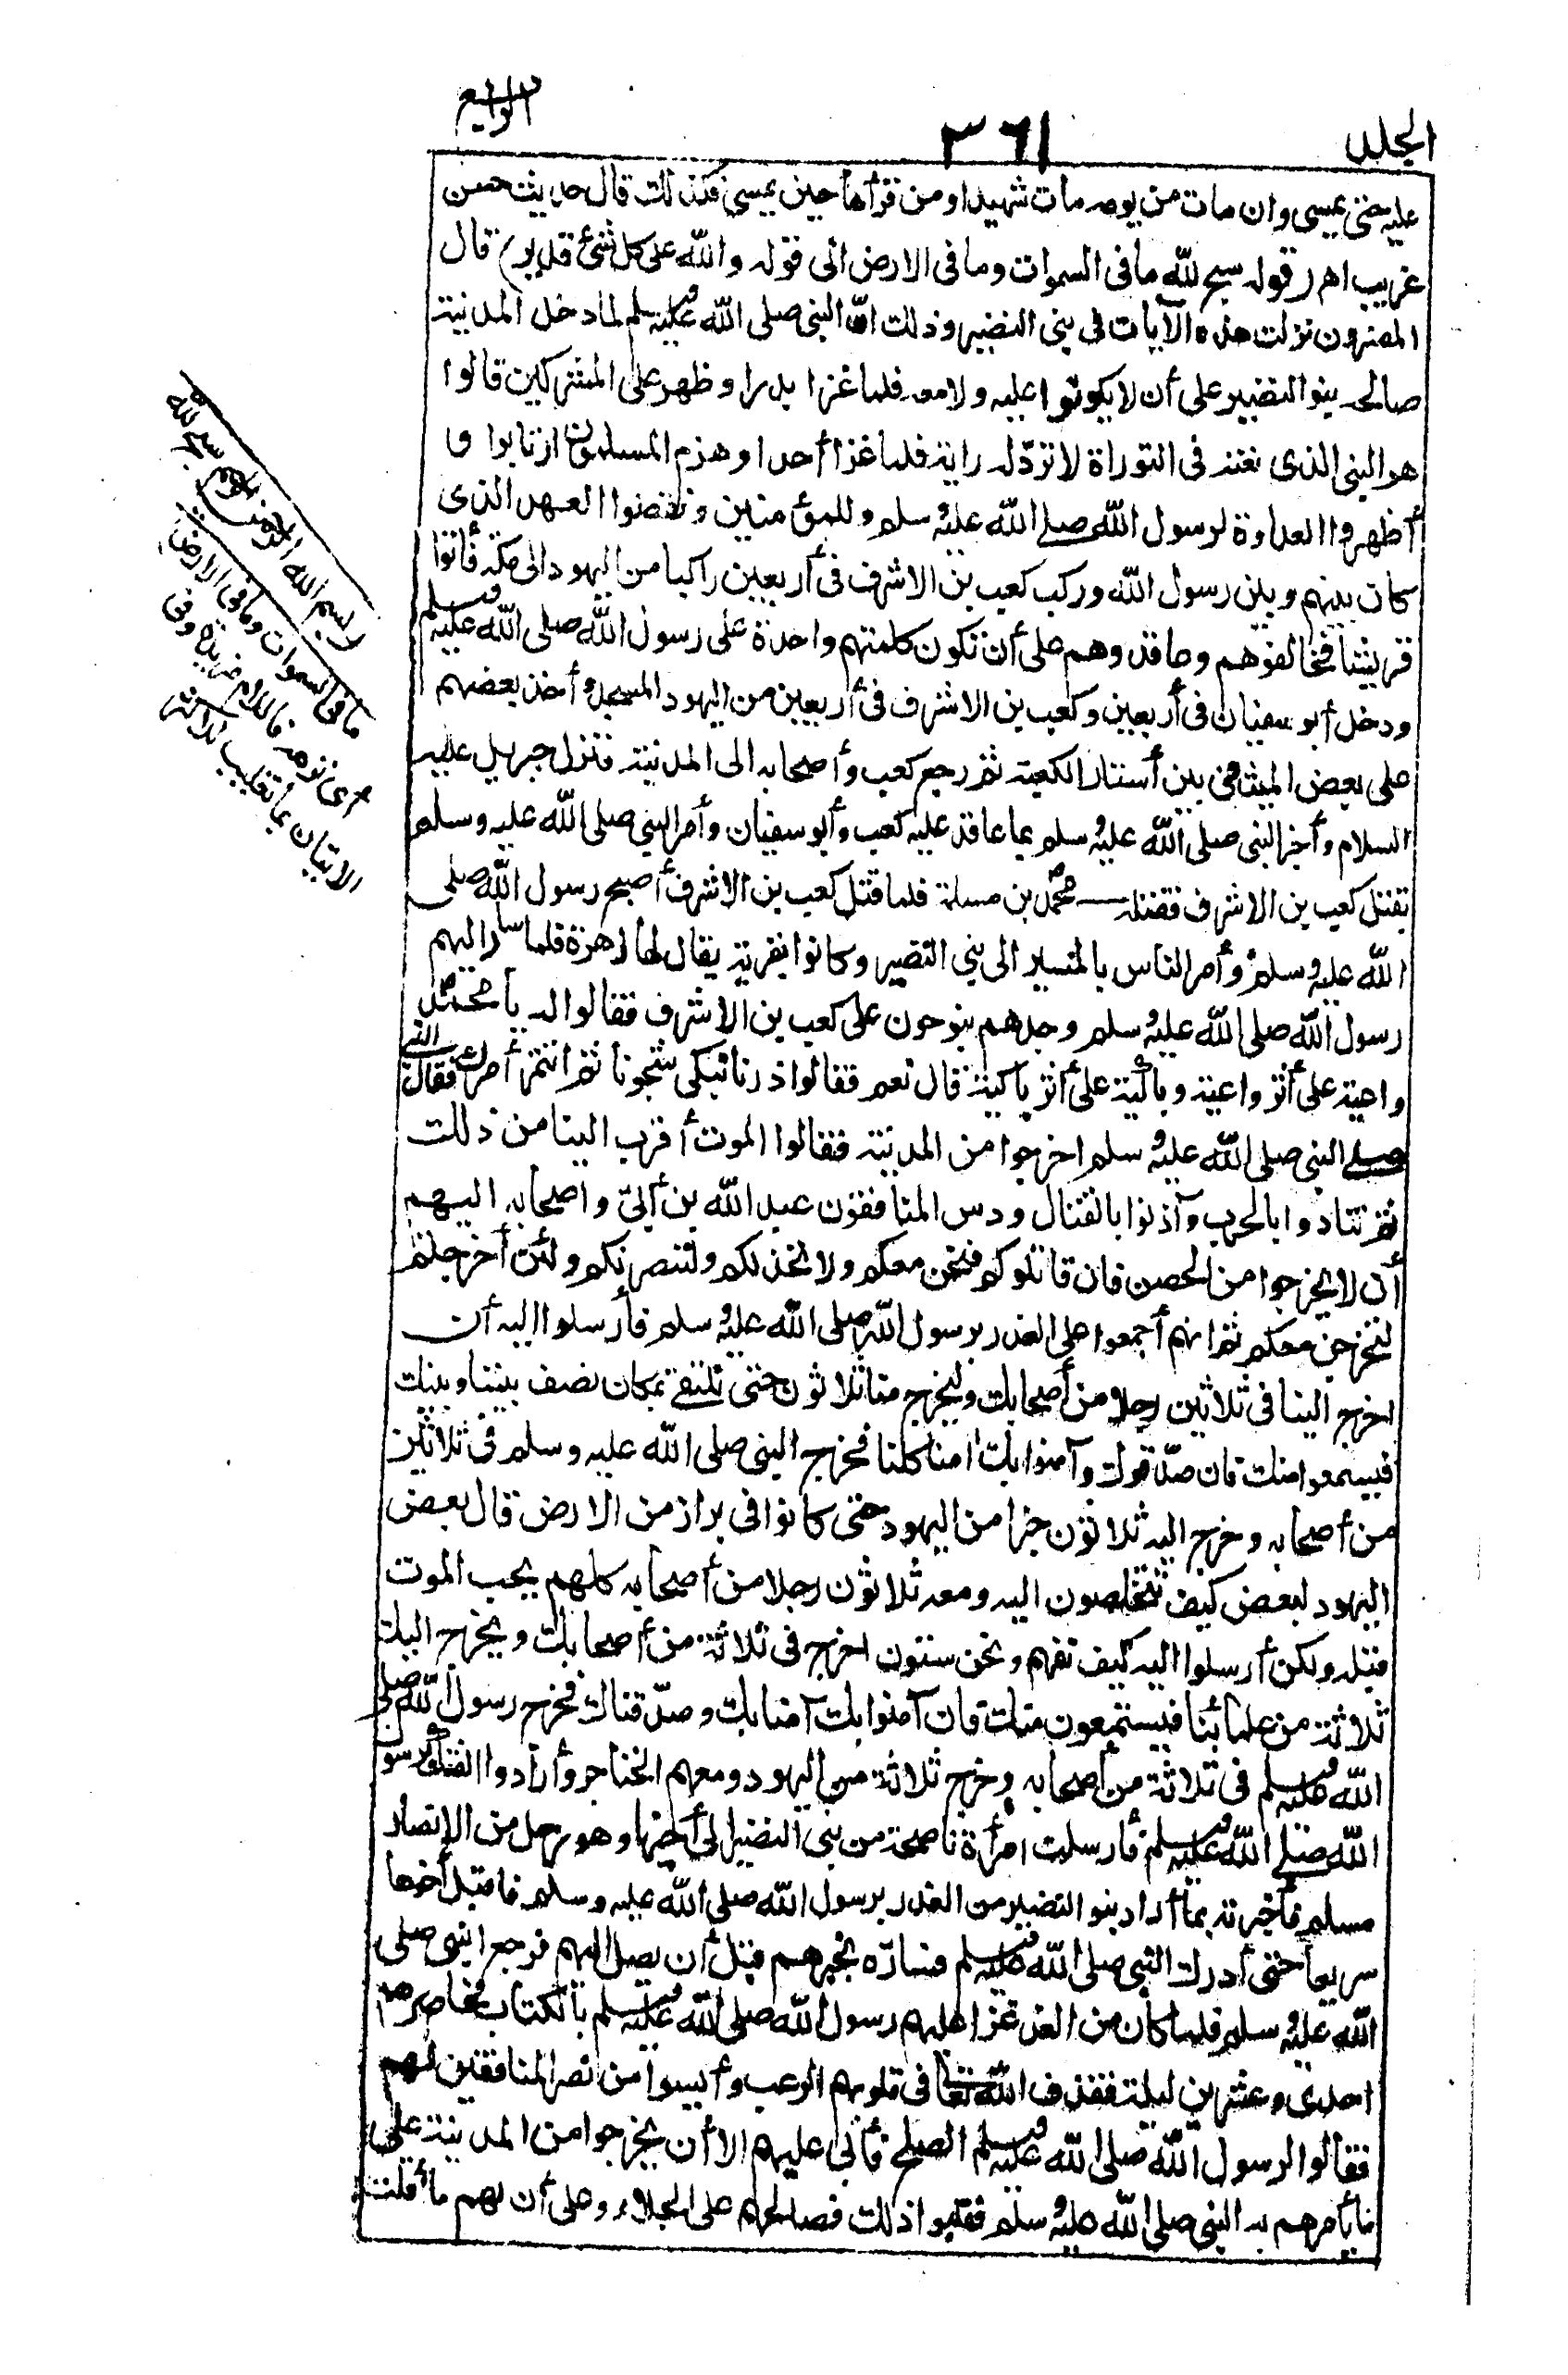 الجلد
٣٦١
الرابع
عليه حتى يمسى وان مات من يومه مات شهيدا ومن قرأها حين يمسى فكذلك قال حديث حسن
غريب اهر قوله سبح لله ما فى السموات وما فى الارض الى قوله والله على كل شئ قدير) قال
المفسرون نزلت هذه الآيات فى بنى النضير وذلك ان النبى صلى الله عليه وسلم لما دخل المدينة
صالحه بنو النضير على أن لا يكونوا عليه ولا معه فلما غزا بدرا وظهر على المشركين قالوا
هو النبى الذى نعته فى التوراة لا تردّ له راية فلما غزا أحدا وهزم المسلمون ارتابوا و
أظهروا العداوة لرسول الله صلى الله عليه وسلم وللمؤمنين ونقضوا العهد الذى
كان بينهم وبين رسول الله وركب كعب بن الاشرف فى أربعين راكبا من اليهود الى مكة فأتوا
قريشا فخالفوهم وعاقدوهم على أن تكون كلمتهم واحدة على رسول الله صلى الله عليه وسلم
ودخل أبو سفيان فى أربعين وكعب بن الاشرف فى أربعين من اليهود المسجد وأخذ بعضهم
على بعض الميثاق بين أستار الكعبة ثم رجع كعب وأصحابه الى المدينة فنزل جبريل عليه
السلام وأخبر النبى صلى الله عليه وسلم بما عاقد عليه كعب وأبو سفيان وأمر النبى صلى الله عليه وسلم
بقتل كعب بن الاشرف فقتله محمد بن مسلمة فلما قتل كعب بن الاشرف أصبح رسول الله صلى
الله عليه وسلم وأمر الناس بالمسير الى بنى النضير وكانوا بقرية يقال لها زهرة فلما سار اليهم
رسول الله صلى الله عليه وسلم وجدهم ينوحون على كعب بن الاشرف فقالوا له يا محمد
واعية على أثر واعية وباكية على أثر باكية قال نعم فقالوا ذرنا نبكى شجونا ثم ائتمر أمرك فقال النبى
صلى النبى صلى الله عليه وسلم اخرجوا من المدينة فقالوا الموت أقرب الينا من ذلك
ثم تنادوا بالحرب وآذنوا بالقتال ودس المنافقون عبد الله بن أبىّ وأصحابه اليهم
أن لا يخرجوا من الحصن فان قاتلوكم فنحن معكم ولا نخذلكم ولننصرنكم ولئن أخرجتم
لنخرجن معكم ثم انهم أجمعوا على الغدر برسول الله صلى الله عليه وسلم فأرسلوا اليه أن
اخرج الينا فى ثلاثين رجلا من أصحابك وليخرج منا ثلاثون حتى نلتقى بمكان نصف بيننا وبينك
فيسمعوا منك فان صدّقوك وآمنوا بك امنا كلنا فخرج النبى صلى الله عليه وسلم فى ثلاثين
من أصحابه وخرج اليه ثلاثون حبرا من اليهود حتى كانوا فى براز من الارض قال بعض
اليهود لبعض كيف تتخلصون اليه ومعه ثلاثون رجلا من أصحابه كلهم يحب الموت
قبله ولكن أرسلوا اليه كيف نفهم ونحن ستون اخرج فى ثلاثة من أصحابك ويخرج اليك
ثلاثة من علمائنا فيستمعون منك فان آمنوا بك آمنا بك وصدّقناك فخرج رسول الله صلى
الله عليه وسلم فى ثلاثة من أصحابه وخرج ثلاثة من اليهود ومعهم الخناجر وأرادوا الفتك برسول
الله صلى الله عليه وسلم فأرسلت امرأة ناصحة من بنى النضير الى أخيها وهو رجل من الانصار
مسلم فأخبرته بما أراد بنو النضير من الغدر برسول الله صلى الله عليه وسلم فاقبل أخوها
سريعا حتى أدرك النبى صلى الله عليه وسلم فسارّه بخبرهم قبل أن يصل اليهم فرجع النبى صلى
الله عليه وسلم فلما كان من الغد غزا عليهم رسول الله صلى الله عليه وسلم بالكتاب فحاصرهم
احدى وعشرين ليلة فقذف الله تعالى فى قلوبهم الرعب وأيسوا من نصر المنافقين لهم
فقالوا لرسول الله صلى الله عليه وسلم الصلح فأبى عليهم الا أن يخرجوا من المدينة على
ما يأمرهم به النبى صلى الله عليه وسلم فقبلوا ذلك فصالحهم على الجلاء وعلى أن لهم ما أقلت
(بسم الله الرحمن الرحيم سبح لله
ما فى السموات وما فى الارض)
أى نزهه فاللام مزيدة وفى
الاتيان بما تغليب للاكثر